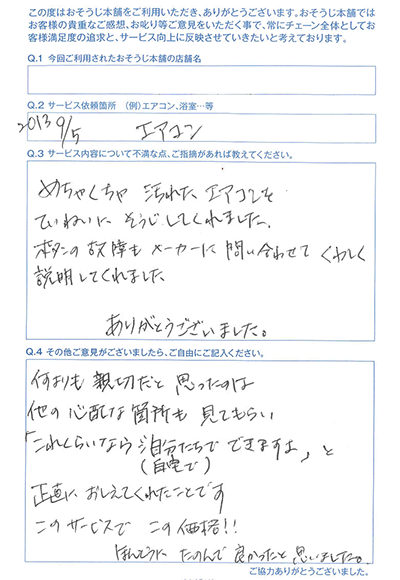 この度はおそうじ本舗をご利用いただき、ありがとうございます。おそうじ本舗では
お客様の貴重なご感想、お叱り等ご意見をいただく事で、常にチェーン全体としてお
客様満足度の追求と、サービス向上に反映させていきたいと考えております。
Q.1 今回ご利用されたおそうじ本舗の店舗名
Q.2 サービス依頼箇所 (例)エアコン、浴室…等
2013 9/5 エアコン
Q.3 サービス内容について不満な点、ご指摘があれば教えてください。
めちゃくちゃ 汚れた エアコンを
ていねいに そうじしてくれました。
ボタンの故障も メーカーに 問い合わせて くわしく
説明してくれました
ありがとうございました。
Q.4 その他ご意見がございましたら、ご自由にご記入ください。
何よりも 親切だと 思ったのは
他の 心配な 箇所も 見てもらい
「これくらいなら 自分たちで できますよ」と
(自宅で)
正直に おしえてくれたことです
このサービスで この価格!!
ほんとうに たのんで 良かったと 思いました。
ご協力ありがとうございました。